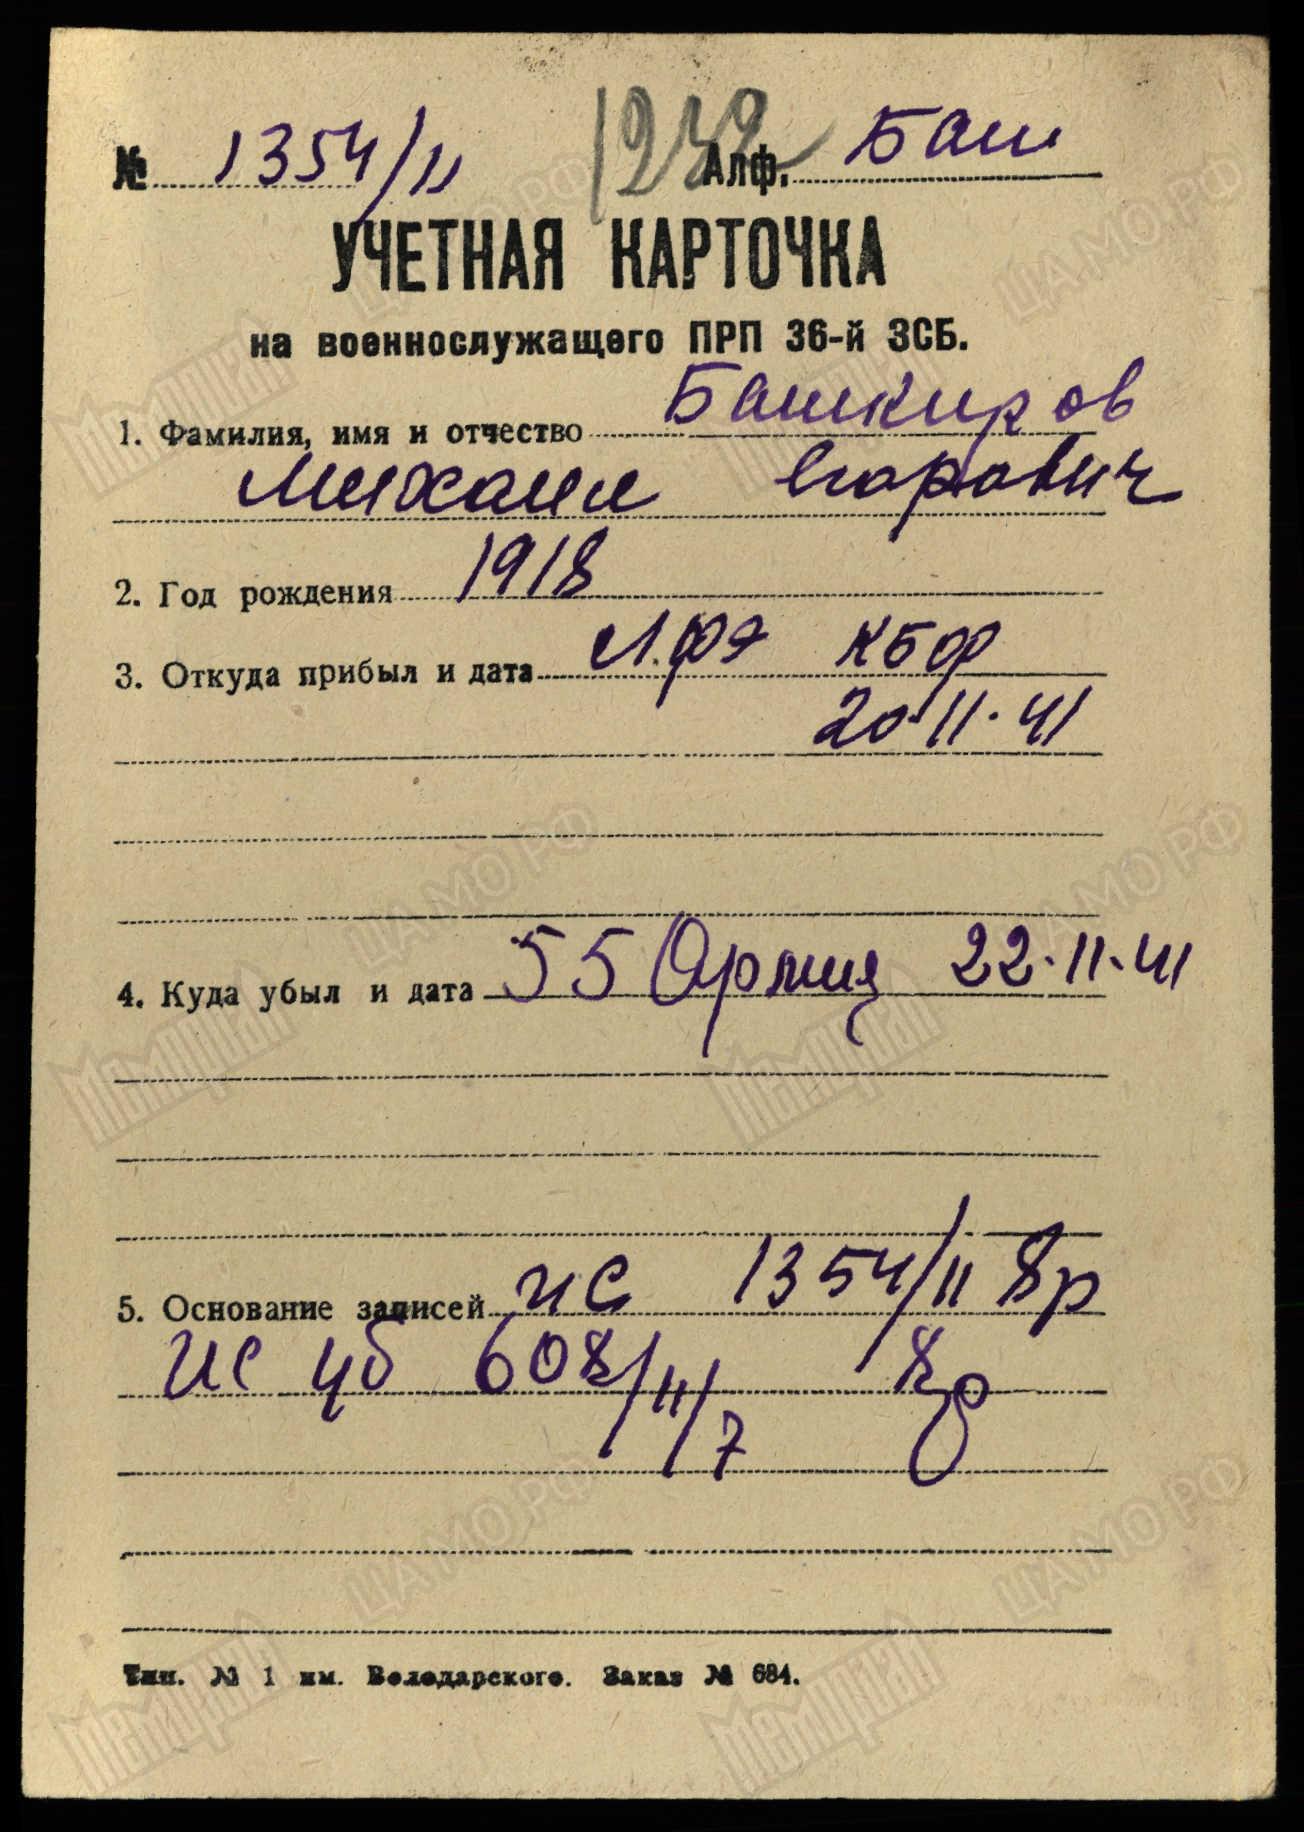 № 1354/11 Алф. Баш
УЧЕТНАЯ КАРТОЧКА
на военнослужащего ПРП 36-й ЗСБ.
1. Фамилия, имя и отчество Башкиров
Михаил Егорович
2. Год рождения 1918
3. Откуда прибыл и дата Л.ФЭ КБФ
20.11.41
4. Куда убыл и дата 55 Армия 22.11.41
5. Основание записей ИС 1354/11
ИС уб 608/11/7
Тип. № 1 им. Володарского. Заказ № 684.
Мемориал
ЦА МО РФ